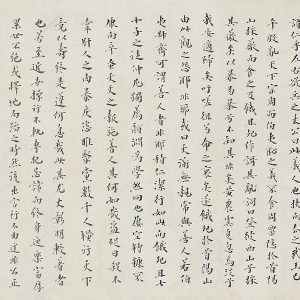 謂仁乎左右欲兵之太公曰此義人也扶而去之武王已
平殷亂天下宗周而伯夷叔齊恥之義不食周粟隱於首陽
山採薇而食之及餓且死作歌其辭曰登彼西山兮采
其薇矣以暴易暴兮不知其非矣神農虞夏忽焉沒兮
我安適歸矣吁嗟徂兮命之衰矣遂餓死於首陽山
由此觀之怨耶非耶或曰天道無親常與善人若伯
夷叔齊可謂善人者非耶積仁潔行如此而餓死且七
十子之徒仲尼獨薦顏淵為好學然回也屢空糟糠不
厭而卒蚤夭天之報施善人其何如哉盜跖日殺不
辜肝人之肉暴戾恣睢聚黨數千人橫行天下
竟以壽終是遵何德哉此其尤大彰明較著者
也若至近世操行不軌專犯忌諱而終身逸樂富厚
累世不絕或擇地而蹈之時然後出言行不由徑非公正